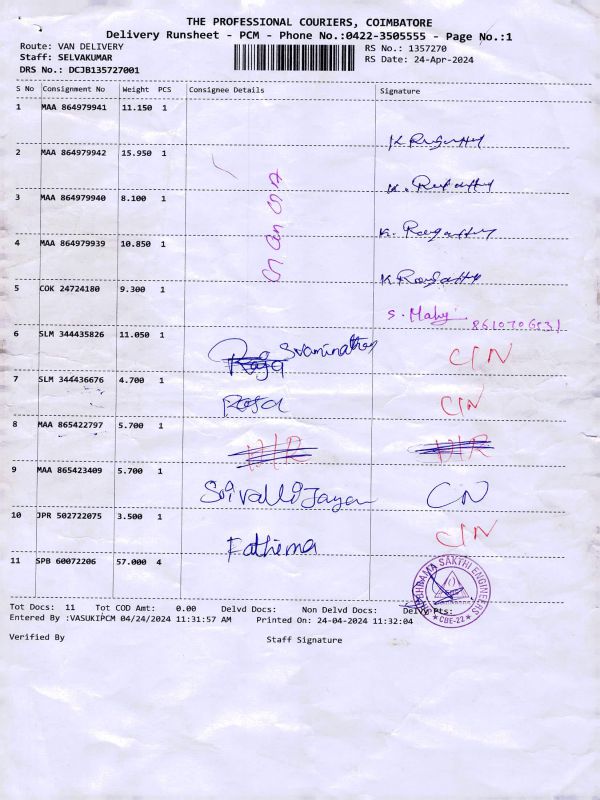 THE PROFESSIONAL COURIERS, COIMBATORE
Delivery Runsheet - PCM - Phone No.:0422-3505555 - Page No.:1
Route: VAN DELIVERY RS No.: 1357270
Staff: SELVAKUMAR RS Date: 24-Apr-2024
DRS No.: DCJB135727001
S No Consignment No Weight PCS Consignee Details Signature
1 MAA 864979941 11.150 1
2 MAA 864979942 15.950 1
3 MAA 864979940 8.100 1
4 MAA 864979939 10.850 1
5 COK 24724180 9.300 1
S. Mahy
6 SLM 344435826 11.050 1
Swaminathan C/N
7 SLM 344436676 4.700 1
Raja C/N
8 MAA 865422797 5.700 1
D/R D/R
9 MAA 865423409 5.700 1
Srivalli Jayan CN
10 JPR 502722075 3.500 1
Fathima C/N
11 SPB 60072206 57.000 4
SAKTHI ENGINEERS
★ CBE-22 ★
Tot Docs: 11 Tot COD Amt: 0.00 Delvd Docs: Non Delvd Docs: Delvy Pts:
Entered By :VASUKIPCM 04/24/2024 11:31:57 AM Printed On: 24-04-2024 11:32:04
Verified By Staff Signature